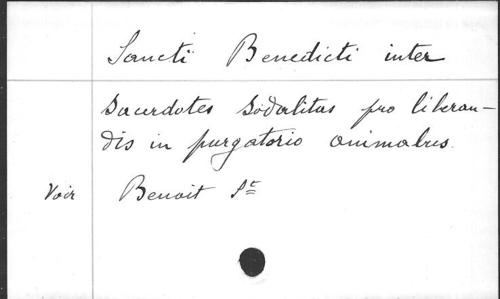 Sancti Benedicti inter
sacerdotes sodalitas pro liberan-
dis in purgatorio animabus.
Voir Benoit St